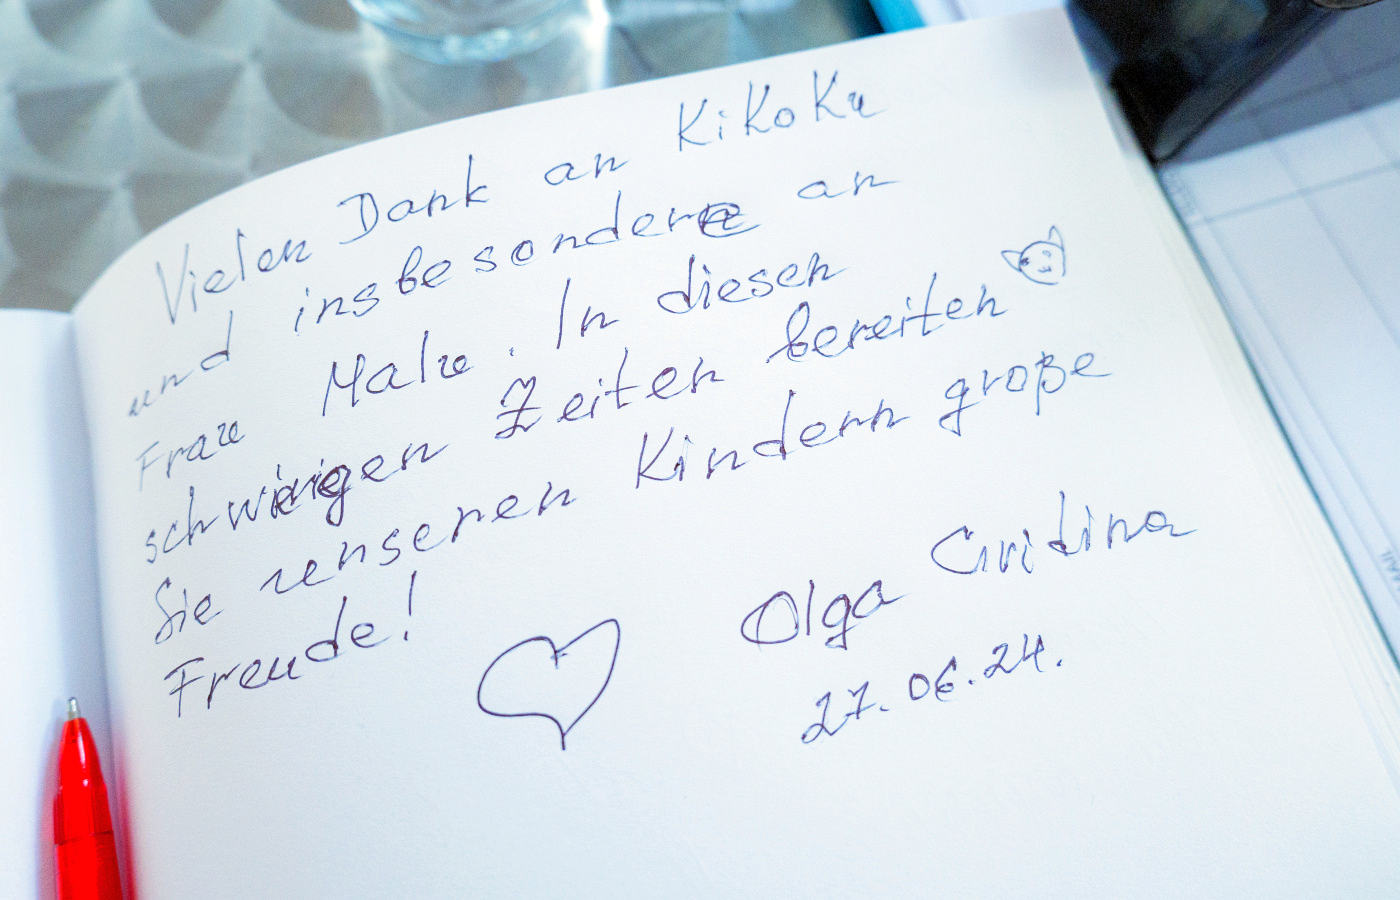 Vielen Dank an KiKoKu
und insbesondere an
Frau Malu. In diesen
schwierigen Zeiten bereiten
Sie unseren Kindern große
Freude!
Olga
27.06.24.